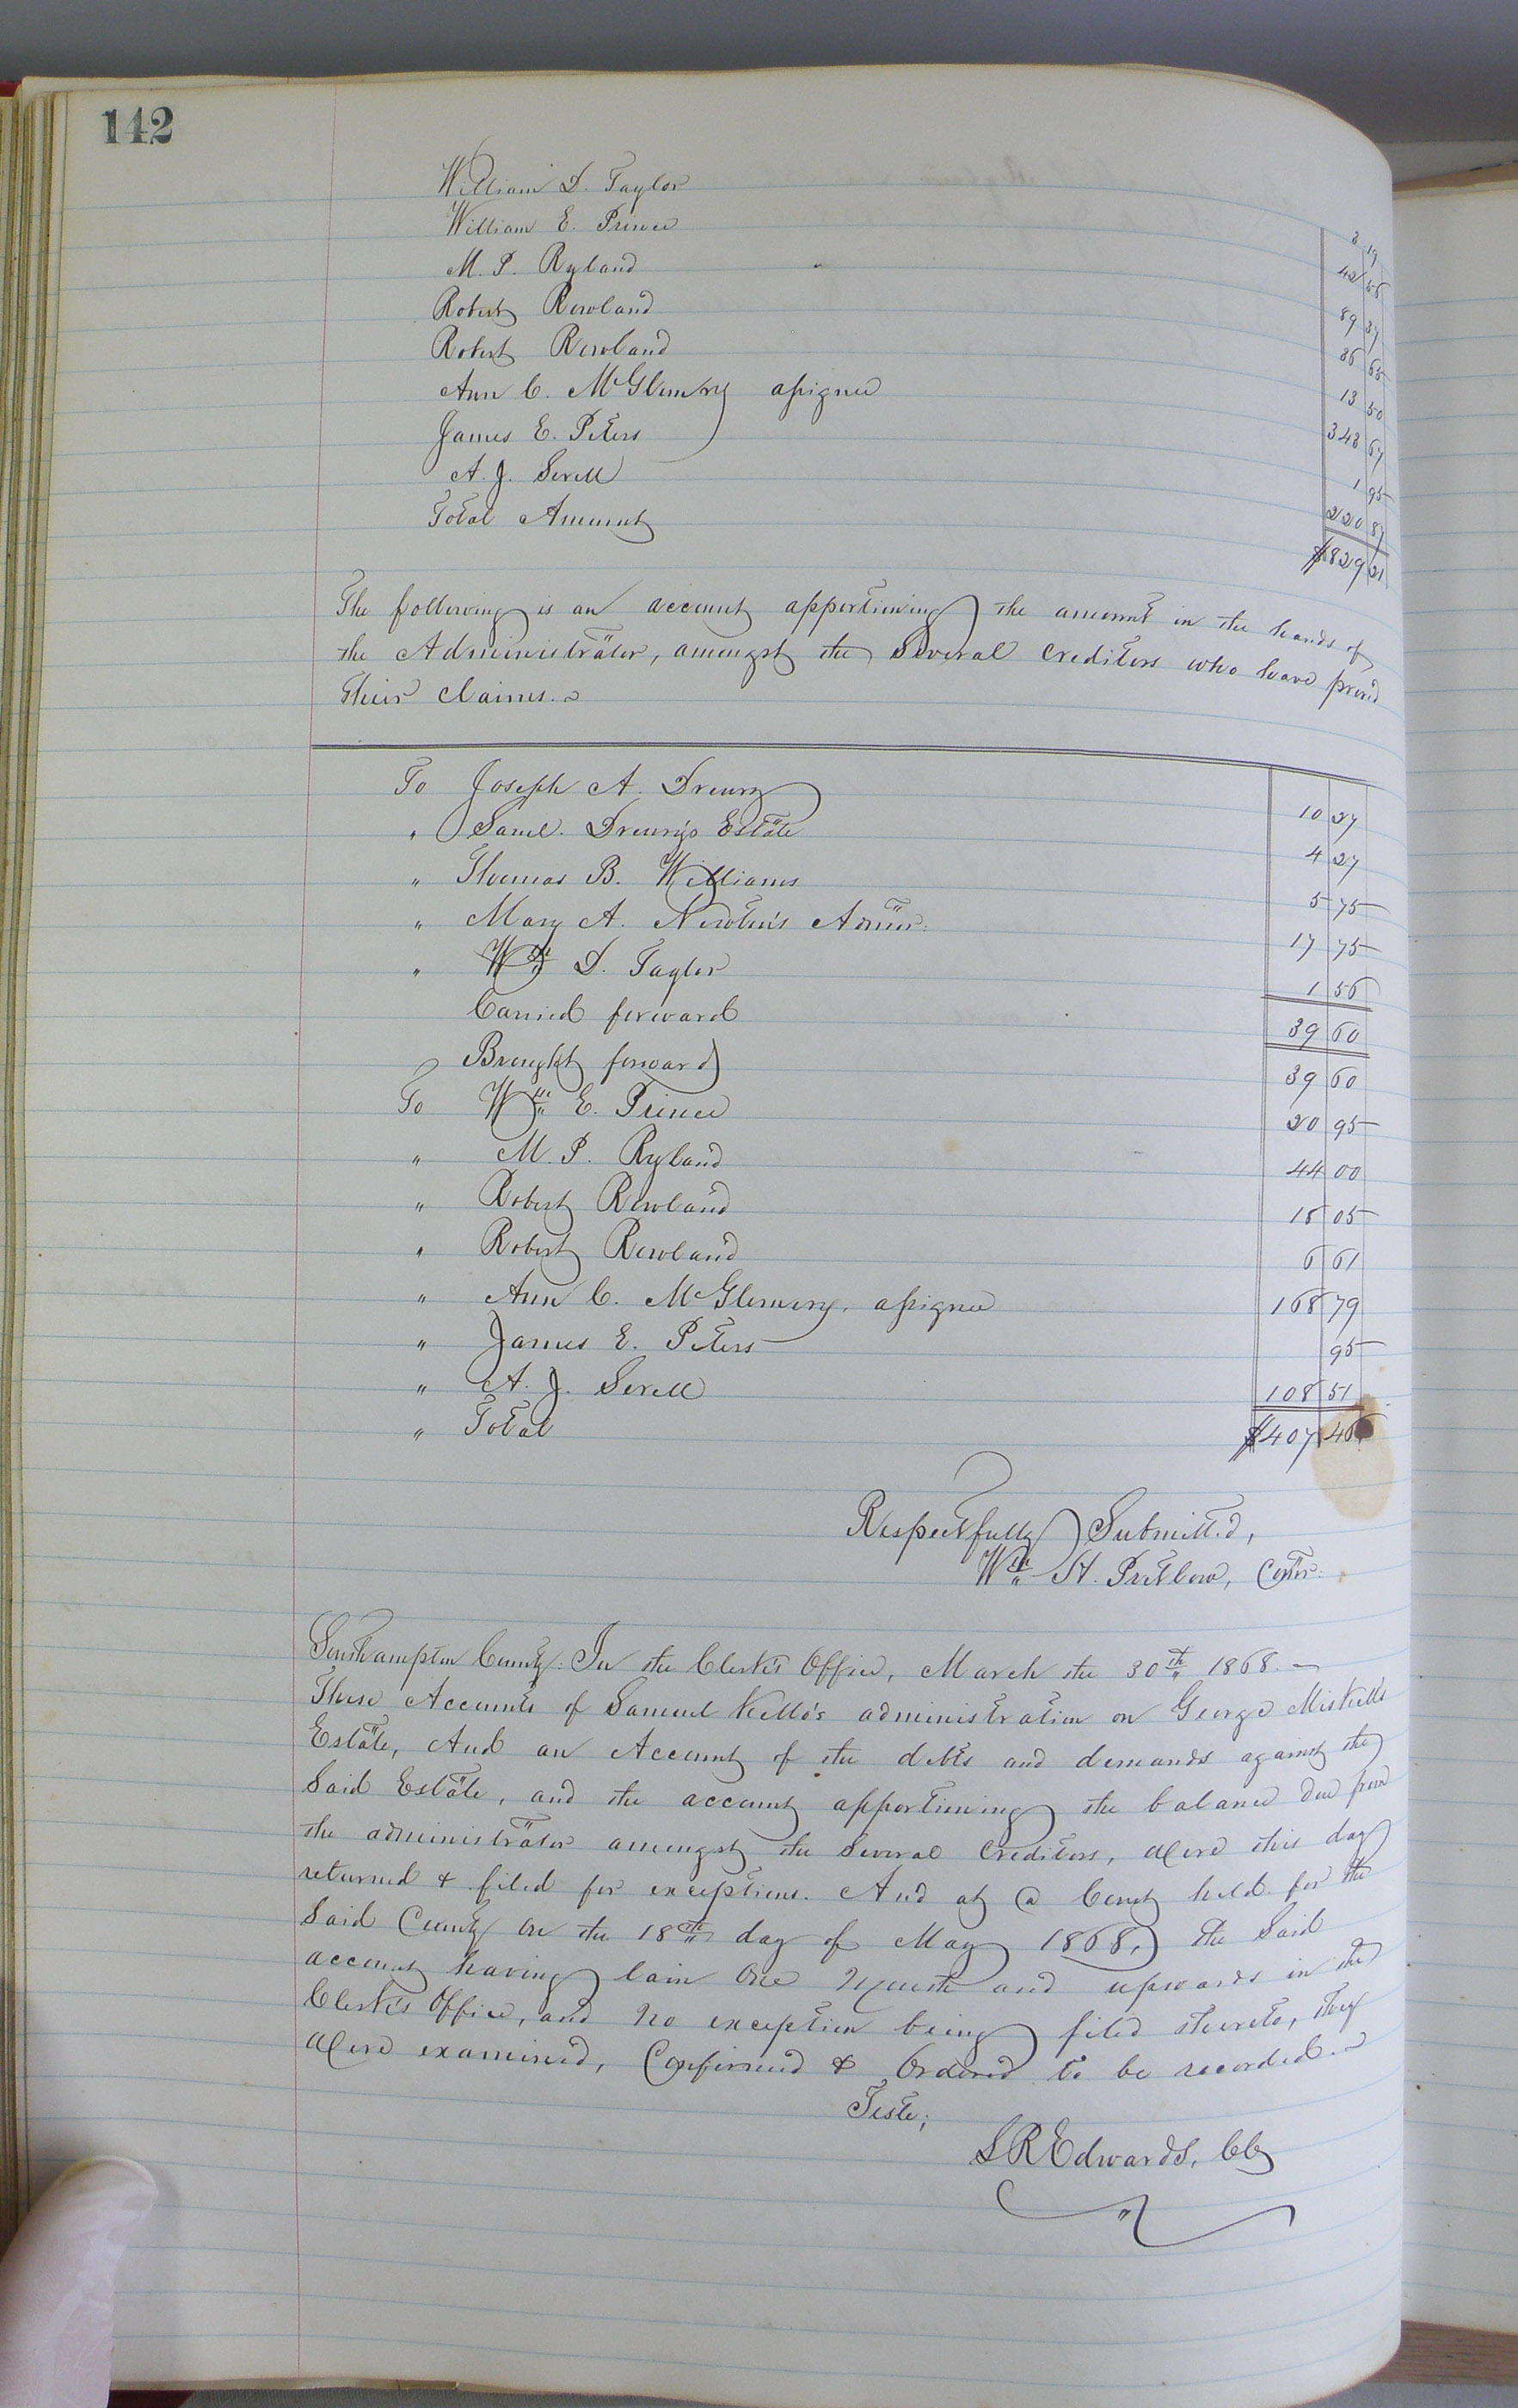 142
William D. Taylor 3 19
William E. Prince 42 55
M. P. Ryland 89 37
Robert Rowland 36 65
Robert Rowland 13 50
Ann C. McGlemry assignee 343 67
James E. Peters 1 95
A. J. Sorell 220 87
Total Amount $829 21
The following is an account apportioning the amount in the hands of
the Administrator, amongst the several creditors who have proved
their claims.
To Joseph A. Drewry 10 27
" Saml. Drewry's Estate 4 27
" Thomas B. Williams 5 75
" Mary A. Newton's Admr. 17 75
" Wm D. Taylor 1 56
Carried forward 39 60
Brought forward 39 60
To Wm E. Prince 20 95
" M. P. Ryland 44 00
" Robert Rowland 18 05
" Robert Rowland 6 61
" Ann C. McGlemry, assignee 168 79
" James E. Peters 95
" A. J. Sorell 108 51
" Total $407 46
Respectfully Submitted,
Wm H. Pretlow, Comr.
Southampton County: In the Clerk's Office, March the 30th 1868.
These Accounts of Samuel Kello's administration on George Miskell's
Estate, And an Account of the debts and demands against the
Said Estate, and the account apportioning the balance due from
the administrator amongst the several creditors, were this day
returned & filed for exceptions. And at a Court held for the
Said County on the 18th day of May 1868, the Said
account having lain One Month and upwards in the
Clerk's Office, and no exception being filed thereto, they
were examined, Confirmed & Ordered to be recorded.
Teste;
L R Edwards, CC